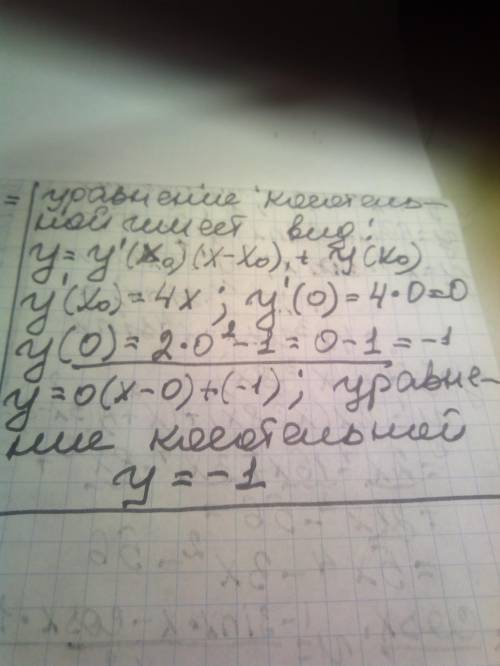 = уравнение касатель-
ной имеет вид:
y = y'(x₀)(x-x₀) + y(x₀)
y'(x₀) = 4x; y'(0) = 4·0=0
y(0) = 2·0²-1 = 0-1 = -1
y = 0(x-0)+(-1); уравне-
ние касательной
y = -1